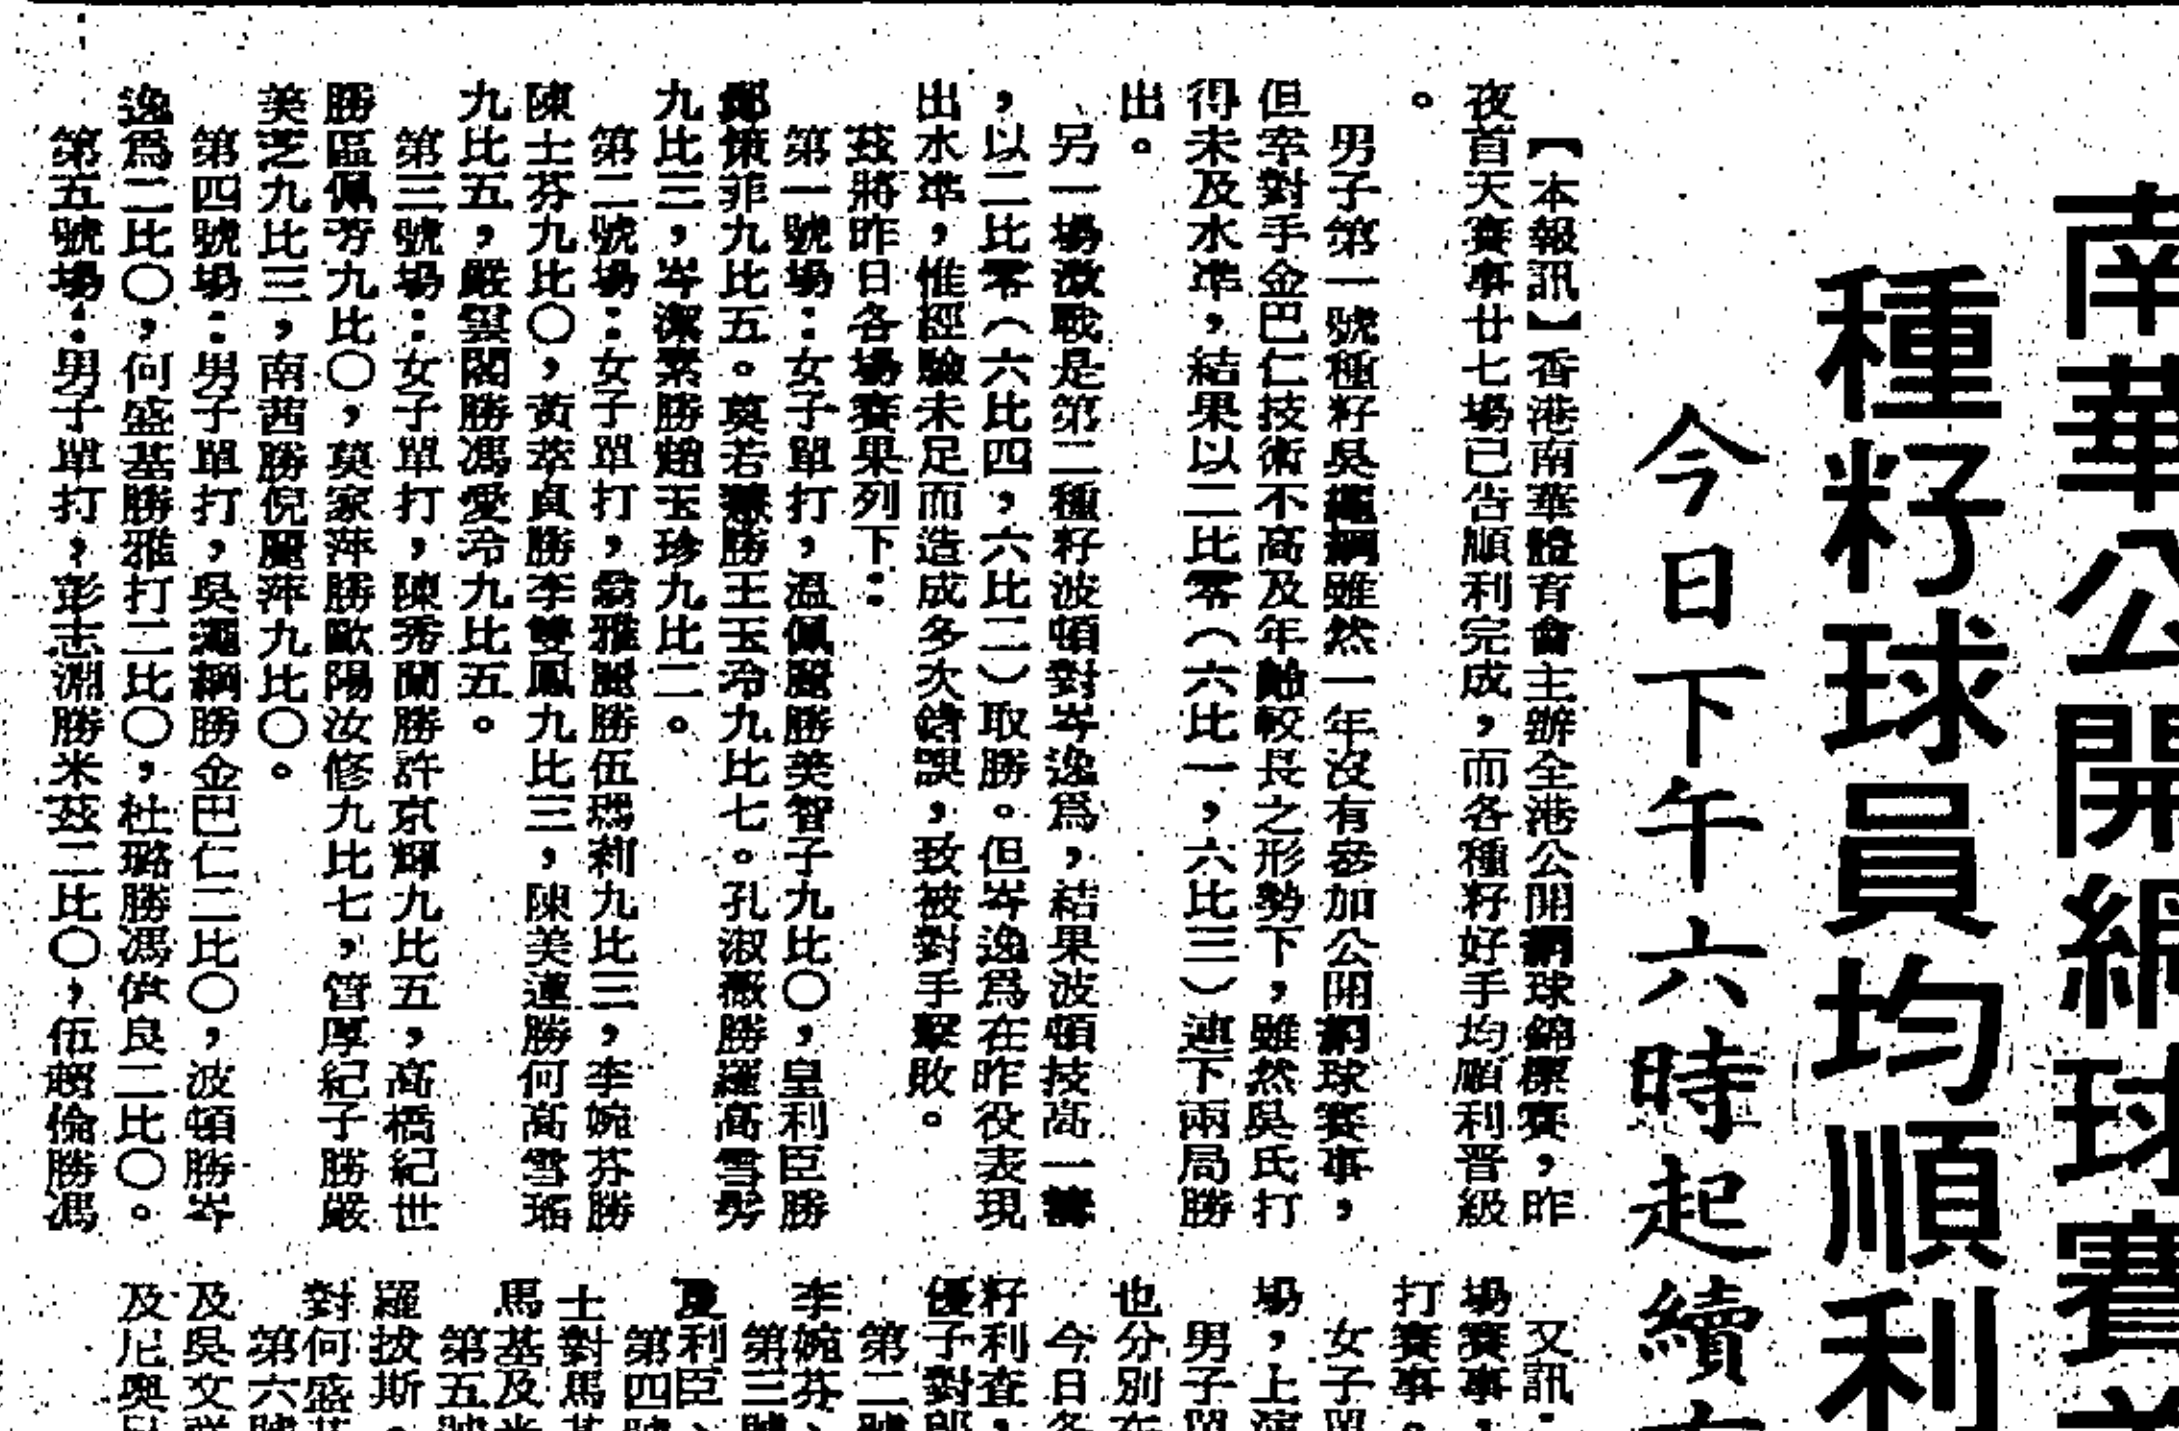 南華公開網球賽
種籽球員均順利
今日下午六時起續
【本報訊】香港南華體育會主辦全港公開網球錦標賽，昨
夜首天賽事廿七場已告順利完成，而各種籽好手均順利晋級
。
男子第一號種籽吳繩綱雖然一年沒有參加公開網球賽事，
但幸對手金巴仁技術不高及年齡較長之形勢下，雖然吳氏打
得未及水準，結果以二比零（六比一，六比三）連下兩局勝
出。
另一場激戰是第二種籽波頓對岑逸爲，結果波頓技高一籌
，以二比零（六比四，六比二）取勝。但岑逸爲在昨役表現
出水準，惟經驗未足而造成多次錯誤，致被對手擊敗。
茲將昨日各場賽果列下：
第一號場：女子單打，溫佩麗勝美智子九比〇，皇利臣勝
菲九比五。莫若勝王玉冷九比七。孔淑薇勝羅高雪
九比三，岑潔素勝趙玉珍九比二。
第二號場：女子單打，雅麗勝伍瑪莉九比三，李婉芬勝
陳士芬九比〇，黃萃貞勝李雙鳳九比三，陳美蓮勝何高雪瑤
九比五，嚴雲閣勝馮愛冷九比五。
第三號場：女子單打，陳秀蘭勝許京輝九比五，高橋紀世
勝區佩芳九比〇，莫家萍勝歐陽汝修九比七，管厚紀子勝嚴
美芝九比三，南茜勝倪麗萍九比〇。
第四號場：男子單打，吳繩綱勝金巴仁二比〇，波頓勝岑
逸爲二比〇，何盛基勝雅打二比〇，杜璐勝馮良二比〇。
第五號場：男子單打，彭志淵勝米茲二比〇，伍倫勝馮
又訊
場賽事，
打賽事。
女子單
場，上演
男子單
也分別在
今日各
籽利查，
優子對
第二號
李婉芬、
第三號
夏利臣、
第四號
士對馬基
馬基及米
第五號
羅拔斯。
對何盛基
第六號
及吳文
及尼奧